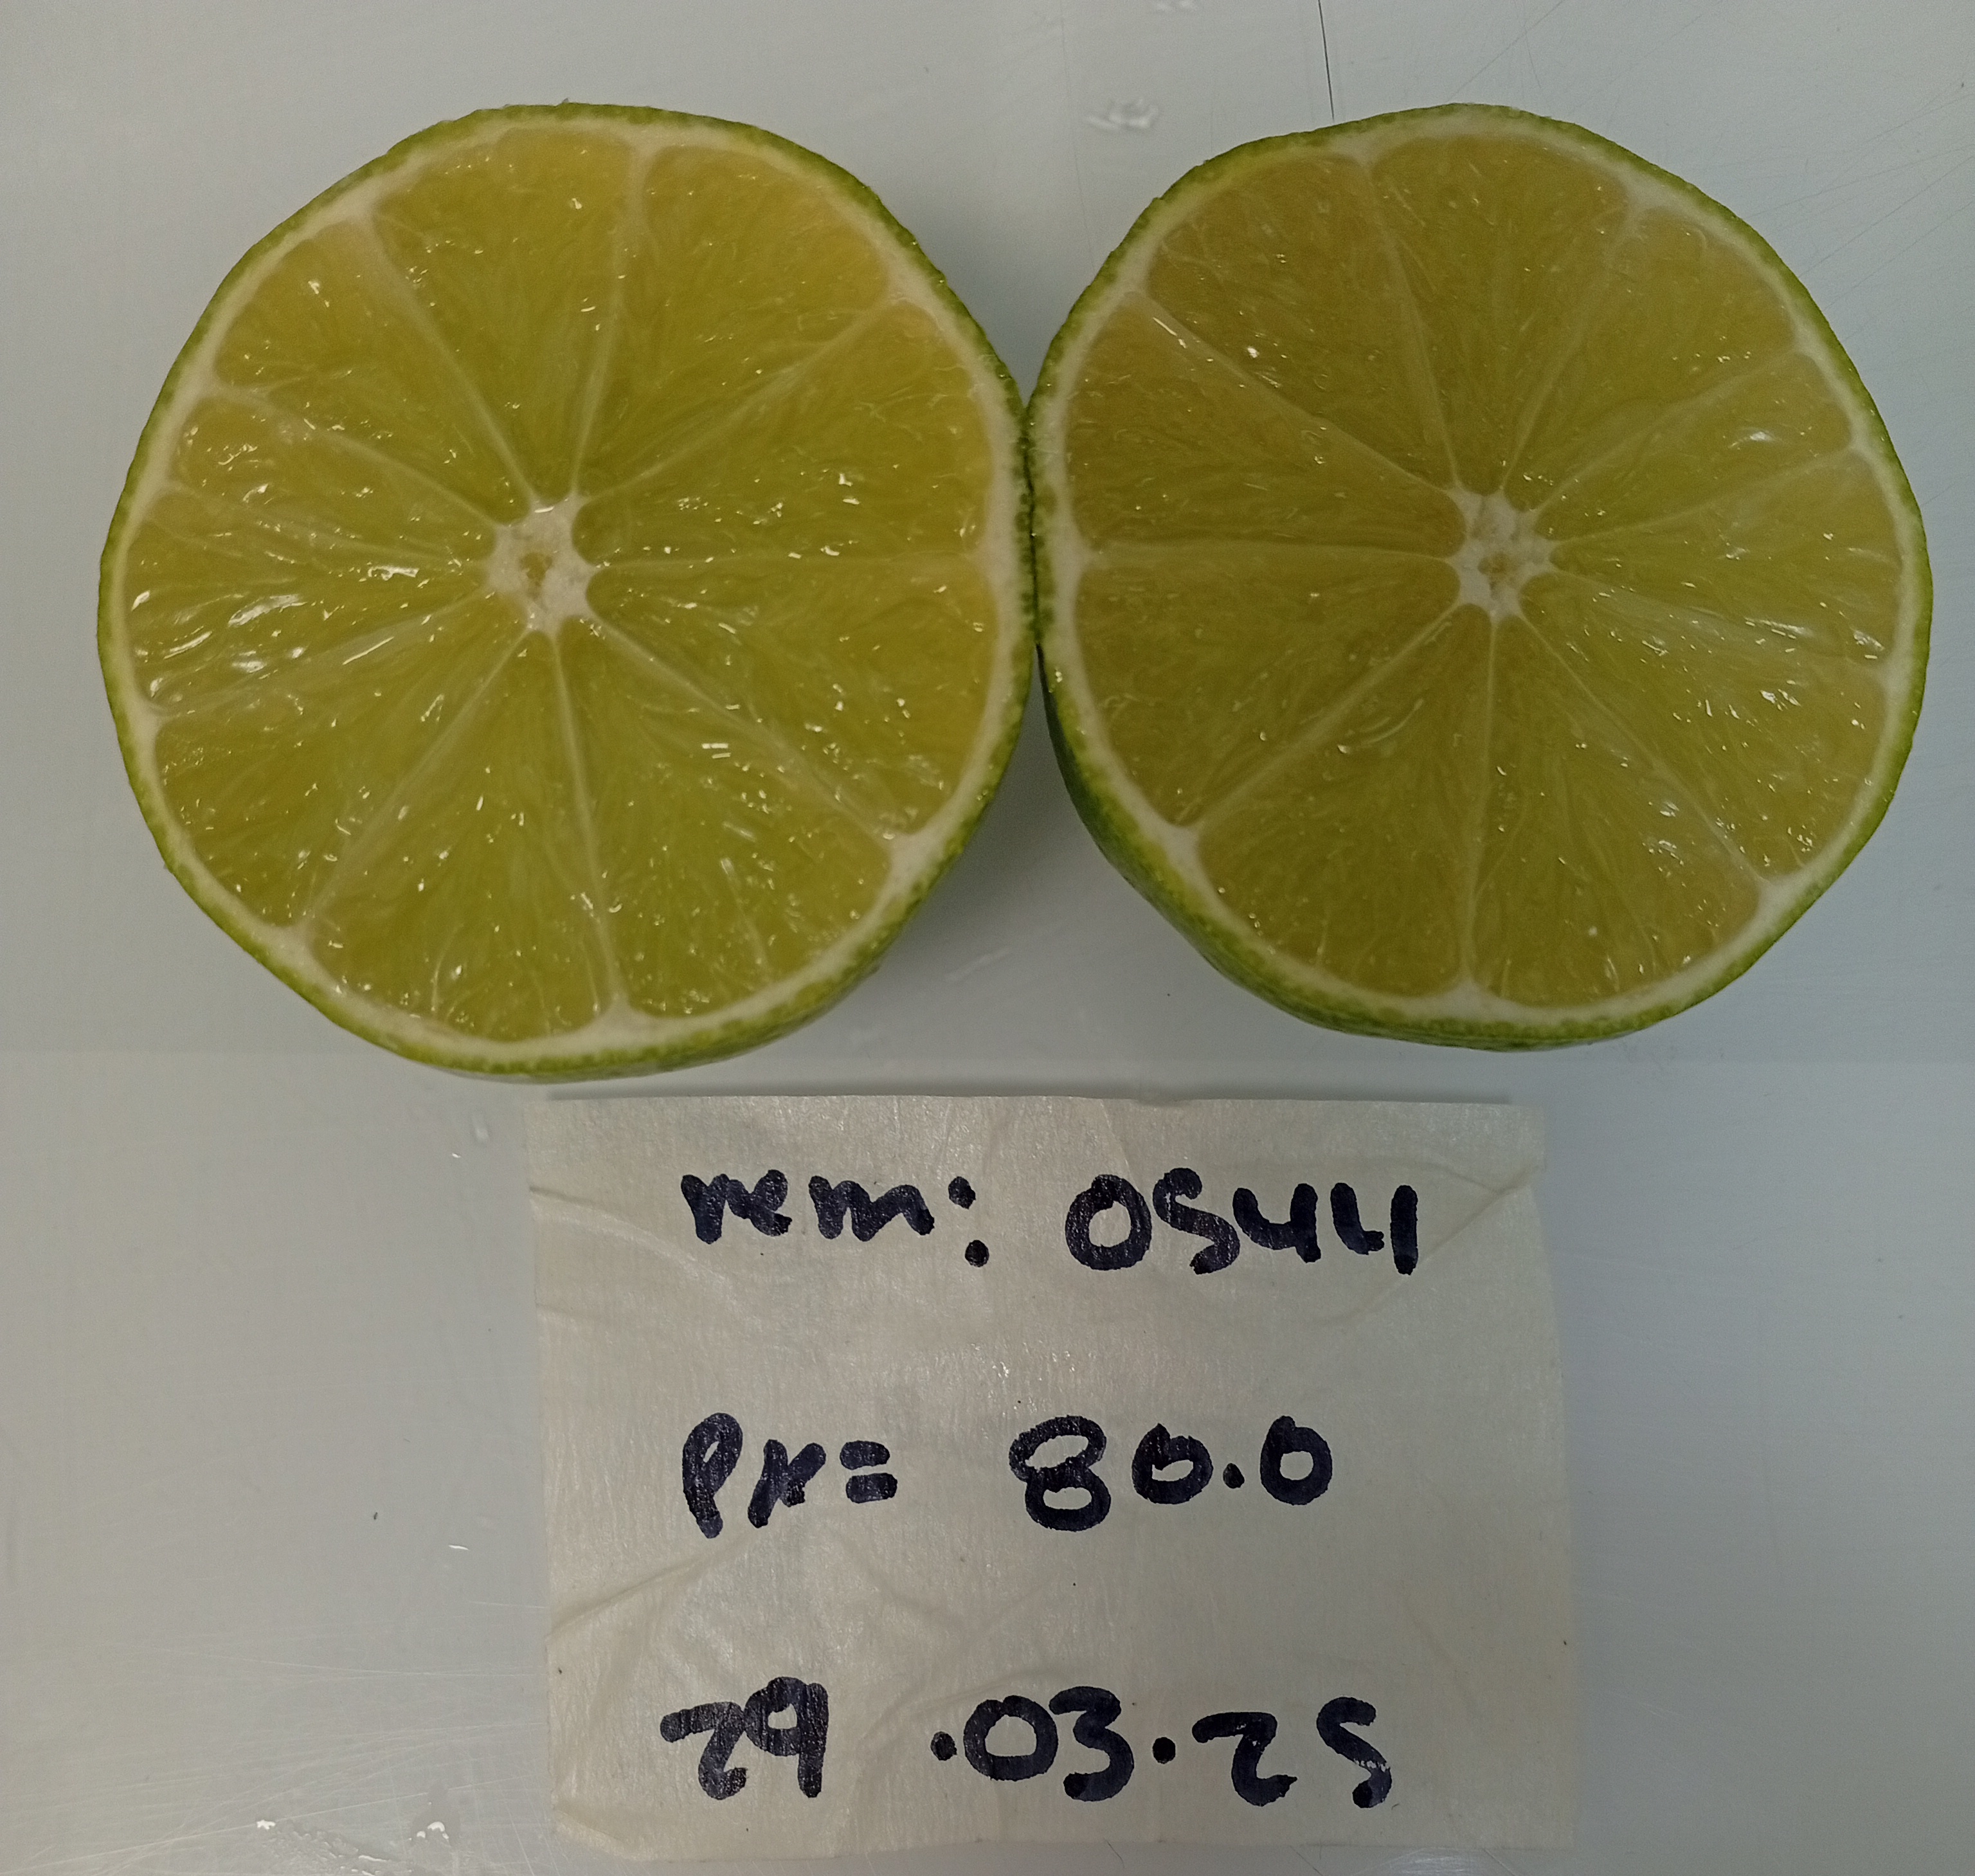 rem: 0544
Px= 80.0
29.03.25